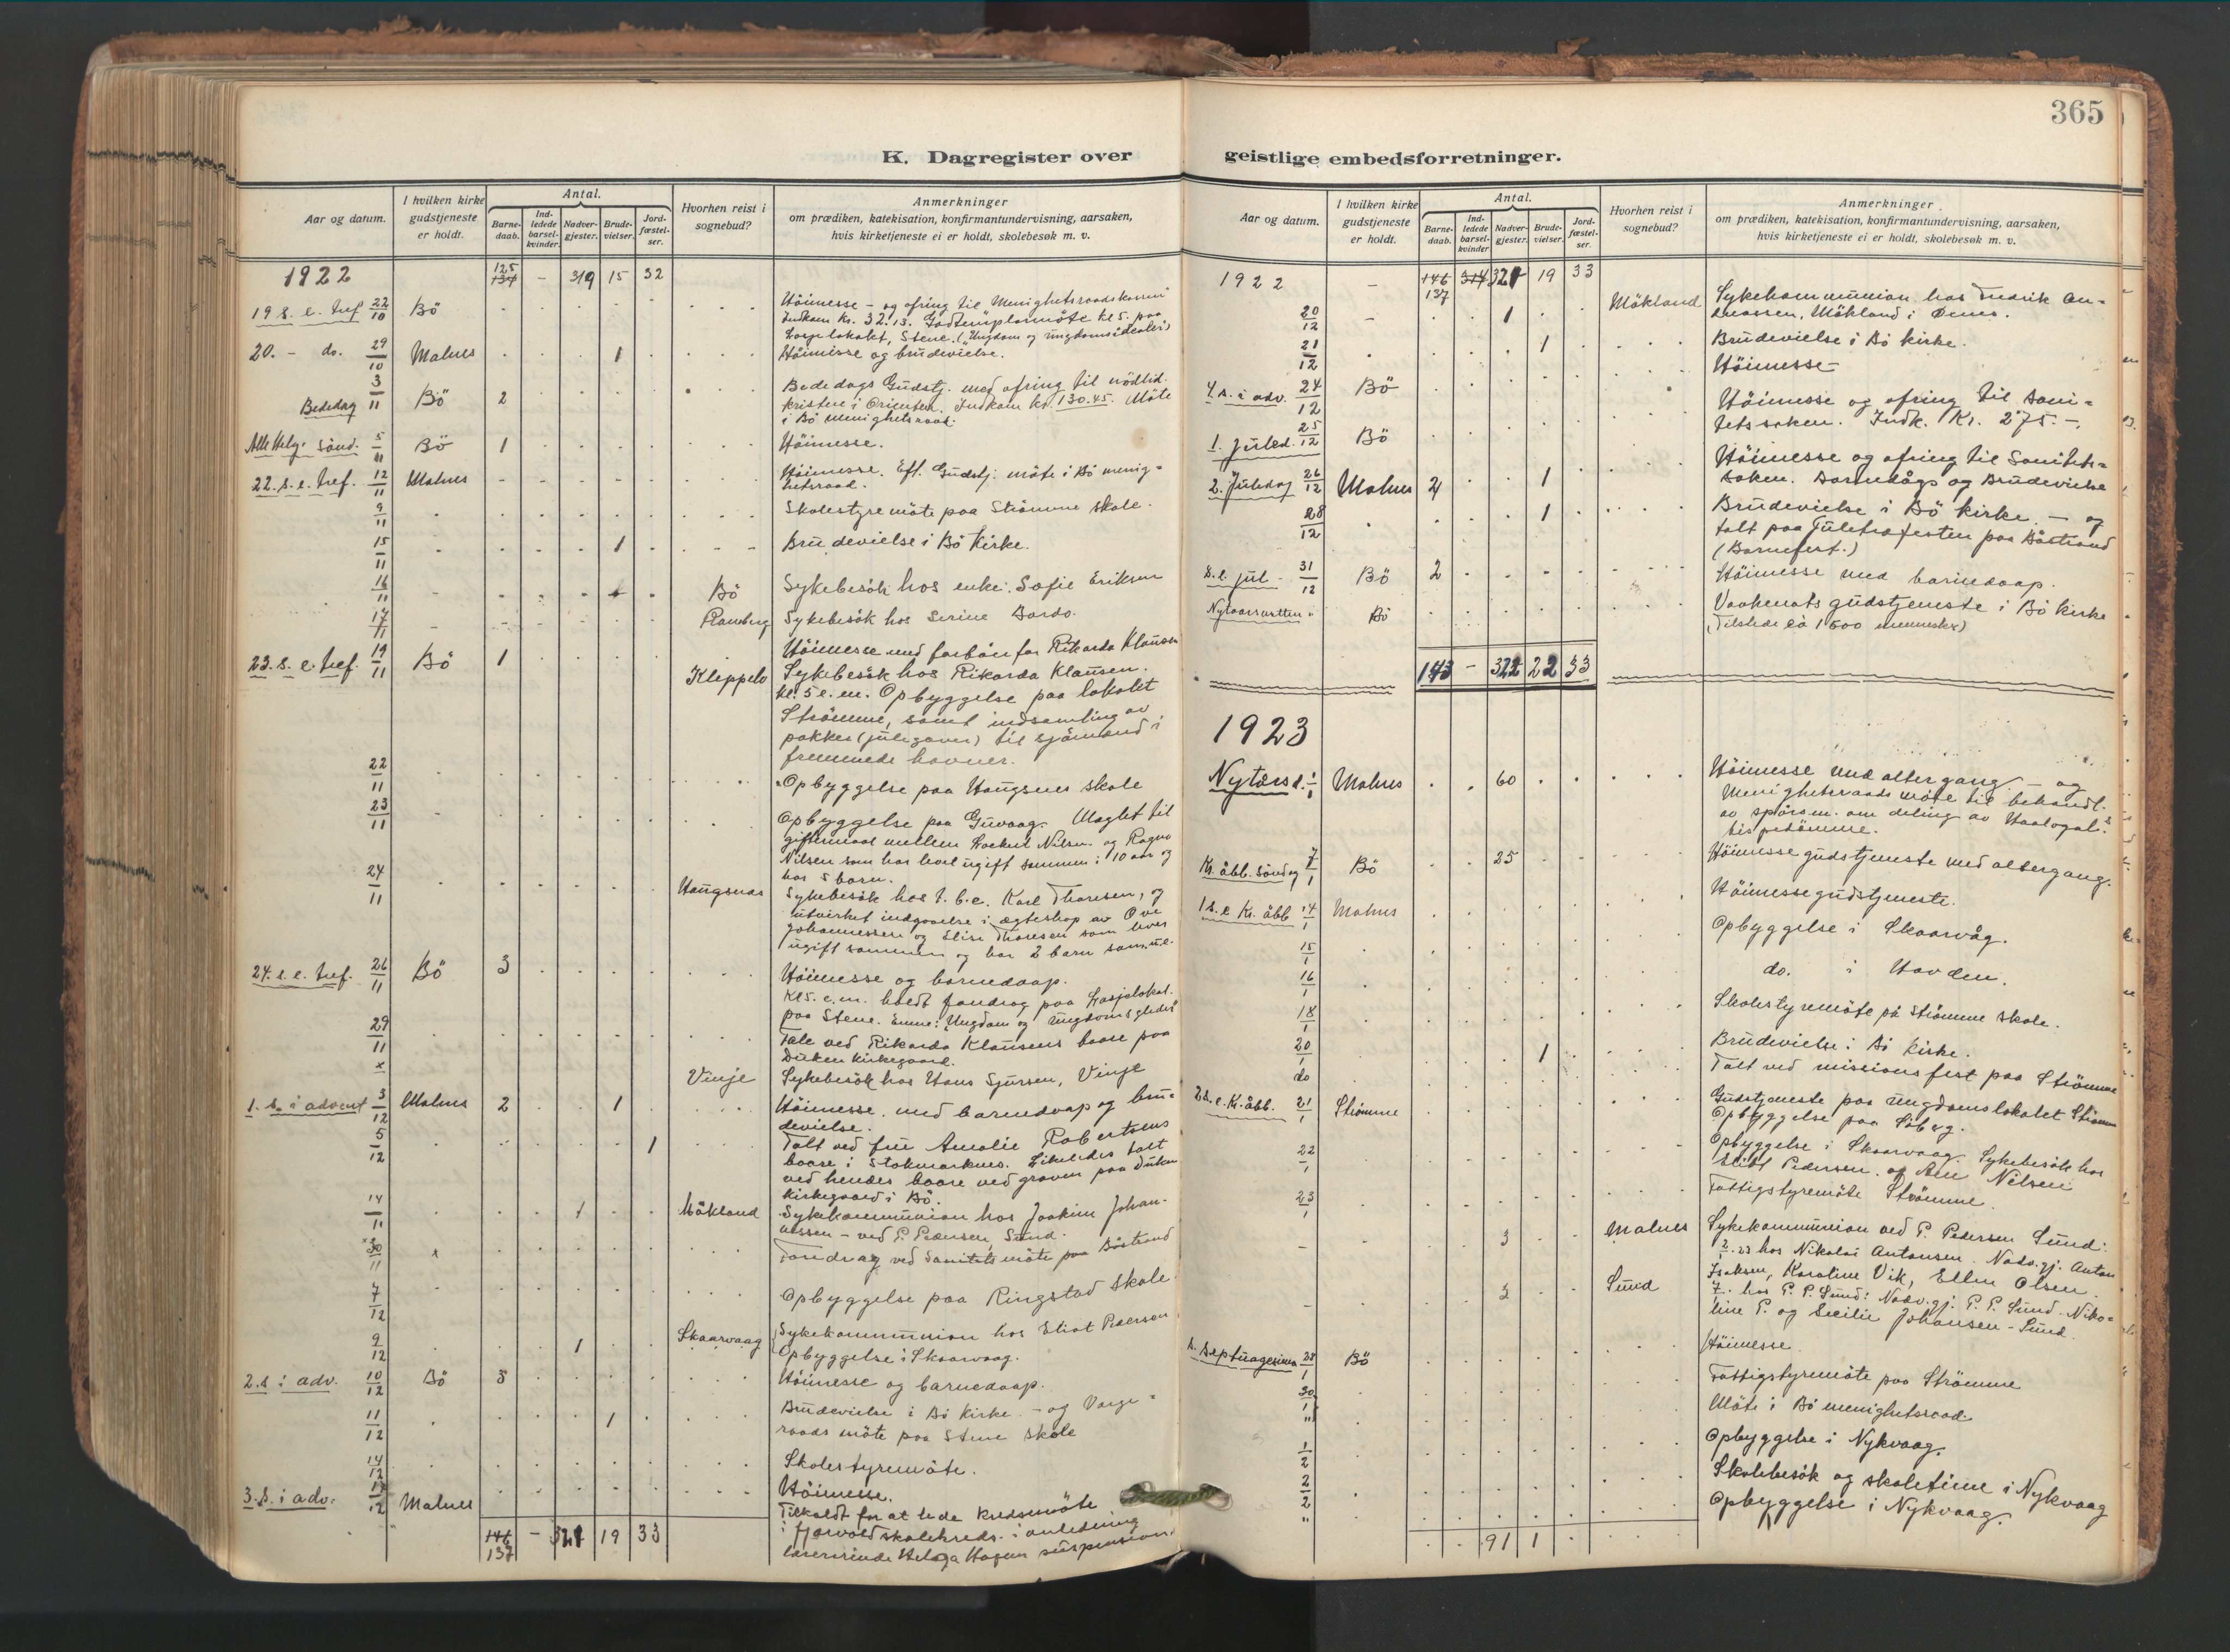 365
K. Dagregister over geistlige embedsforretninger.
Aar og datum.
I hvilken kirke gudstjeneste er holdt.
Antal.
Barne-daab.
Ind-ledede barsel-kvinder.
Nadver-gjester.
Brude-vielser.
Jord-fæstel-ser.
Hvorhen reist i sognebud?
Anmerkninger
om prædiken, katekisation, konfirmantundervisning, aarsaken,
hvis kirketjeneste ei er holdt, skolebesøk m. v.
1922 125 - 319 15 32
19 s. e. tref 22/10 Bö Höimesse - og ofring til Menighetsraadskassen
Indkom kr. 32.13. Godtemplarmöte kl 5. paa
Losjelokalet, Stene. (Ungdom og ungdomsidealer)
20. - do. 29/10 Malnes 1 Höimesse og brudevielse.
Bededag 3/11 Bö 2 Bededags Gudstj. med ofring til nödlid.
kristne i Orienten. Indkom kr. 130.45. Möte
i Bö menighetsraad.
Alle Helg. Sönd. 5/11 Bö 1 Höimesse.
22. s. e. tref. 12/11 Malnes Höimesse. Eft. Gudstj. möte i Bö menig-
hetsraad.
9/11 Skolestyremöte paa Strömme skole.
15/11 1 Brudevielse i Bö Kirke.
16/11 Bö Sykebesök hos enke Sofie Eriksen
17/11 Ramberg Sykebesök hos Serine Bordo.
23. s. e. tref. 19/11 Bö 1 Höimesse med forbön for Rikarda Klausen
Kleppelv Sykebesök hos Rikarda Klausen.
kl. 5 e. m. Opbyggelse paa lokalet
Strömme, samt indsamling av
pakker (julegaver) til sjömænd i
fremmede havner.
22/11 Opbyggelse paa Haugsnes skole
23/11 Opbyggelse paa Guvaag. Mæglet til
giftermaal mellem Nilsen og Ragna
Nilsen som har levet ugift sammen i 10 aar og
har 5 barn.
24/11 Haugsnes Sykebesök hos t. b. c. Karl Thoresen, og
utvirket indgaaelse i ægteskap av Ove
Johannessen og Elise Thoresen som lever
ugift sammen og har 2 barn samme.
24. s. e. tref. 26/11 Bö 3 Höimesse og barnedaap.
Kl 5. e. m. holdt foredrag paa Losjelokal.
paa Stene. Emne: "Ungdom og ungdomsglede"
29/11 Tale ved Rikarda Klausens baare paa
Duken kirkegaard.
x Vinje Sykebesök hos Hans Sjursen, Vinje
1. s. i advent 3/12 Malnes 2 1 Höimesse med barnedaap og bru-
devielse.
5/12 1 Talt ved fru Amalie Robertsens
baare i Stokmarknes. Likeledes talt
ved hendes baare ved graven paa Duken
Kirkegaard i Bö.
14/11 1 Mökland Sykekommunion hos Joakim Johan-
nessen - ved P. Pedersen, Sund.
30/11 Foredrag ved Sanitetsmöte paa Böstrand
7/12 Opbyggelse paa Ringstad skole
9/12 1 Skaarvaag Sykekommunion hos Eliot Pedersen
Opbyggelse i Skaarvaag.
2. s i adv. 10/12 Bö 3 Höimesse og barnedaap.
11/12 1 Brudevielse i Bö Kirke - og Værge-
raads möte paa Stene skole
14/12 Skolestyremöte.
3. s. i adv. 17/12 Malnes Höimesse.
Tilkaldt for at lede kredsmöte
i Fjærvold skolekreds i anledning
lærerinde Helga Hagens suspension.
146 137 - 321 19 33
1922 - 146 137 314 321 19 33
20/12 1 Mökland Sykekommunion hos Fredrik An-
dreassen, Mökland i Öksnes.
21/12 1 Brudevielse i Bö kirke.
4. s. i adv. 24/12 Bö Höimesse
1. juled. 25/12 Bö Höimesse og ofring til Sani-
tetssaken. Indk. Kr. 275.-.
2. Juledag 26/12 Malnes 4 1 Höimesse og ofring til Sanitets-
saken. Barnedåp og Brudevielse
28/12 1 Brudevielse i Bö kirke - og
talt paa Juletrafesten paa Böstrand
(Barnefest.)
s. e. jul - 31/12 Bö 2 Höimesse med barnedaap.
Nytaarsnatten Bö Vaakenatsgudstjeneste i Bö kirke
(Tilstede ca 1500 mennesker)
143 - 322 22 33
1923
Nytårsd. 1/1 Malnes 60 Höimesse med altergang - og
Menighetsraads möte til behandl.
av spörsm. om deling av Haalogal.s
bispedömme.
Kr. åbb. Söndag 7/1 Bö 25 Höimessegudstjeneste med altergang.
1 s. e Kr. åbb 14/1 Malnes Höimessegudstjeneste.
15/1 Opbyggelse i Skaarvåg.
16/1 do. i Hovden.
18/1 Skolestyremöte på Strömme skole.
20/1 1 Brudevielse i Bö kirke.
do Talt ved missionsfest paa Strömme
2 s. e. Kr. åbb. 21/1 Strömme Gudstjeneste paa ungdomslokalet Strömme
Opbyggelse paa Söberg.
22/1 Opbyggelse i Skaarvaag. Sykebesök hos
Eliot Pedersen og Ane Nilsen
23/1 Fattigstyremöte Strömme.
- 3 Malnes Sykekommunion ved P. Pedersen Sund:
2/1 23 hos Nikolai Antonsen. Nadv.gj. Anton
Isaksen, Karoline Vik, Ellen Olsen.
- 3 Sund 7. hos P. P. Sund: Nadv.gj. P. P. Sund. Niko-
line P. og Secilie Johansen - Sund.
s. septuagesima 28/1 Bö Höimesse.
30/1 Fattigstyremöte paa Strömme
" Möte i Bö menighetsraad.
1/2 Opbyggelse i Nykvaag.
2/2 Skolebesök og skoletime i Nykvaag
" Opbyggelse i Nykvaag.
91 1